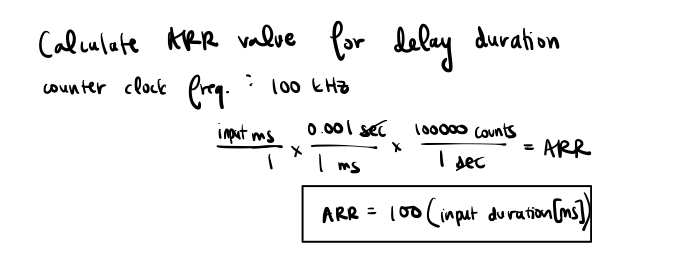 Calculate ARR value for delay duration
counter clock freq. : 100 kHz
input ms / 1 × 0.001 sec / 1 ms × 100000 counts / 1 sec = ARR
ARR = 100 (input duration[ms])